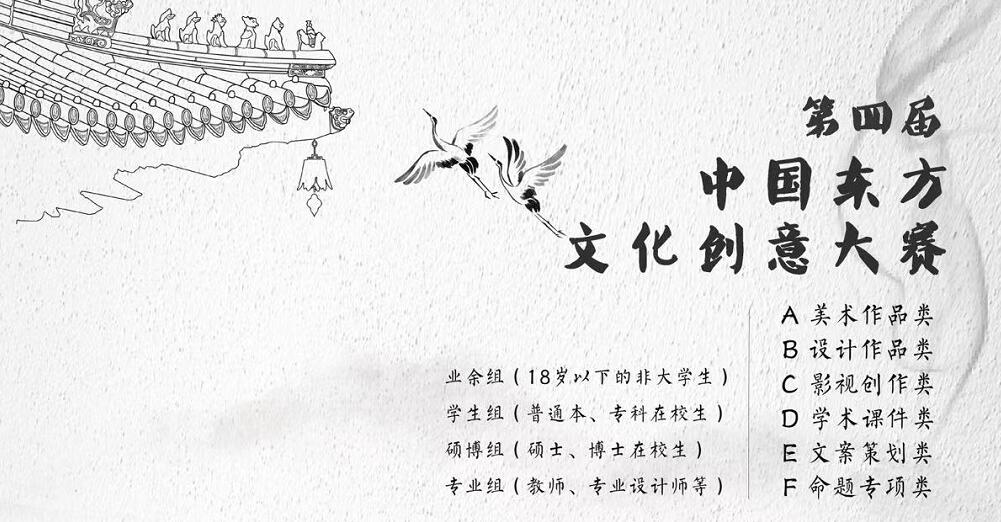 第四届
中国东方
文化创意大赛
A 美术作品类
B 设计作品类
C 影视创作类
D 学术课件类
E 文案策划类
F 命题专项类
业余组（18岁以下的非大学生）
学生组（普通本、专科在校生）
硕博组（硕士、博士在校生）
专业组（教师、专业设计师等）